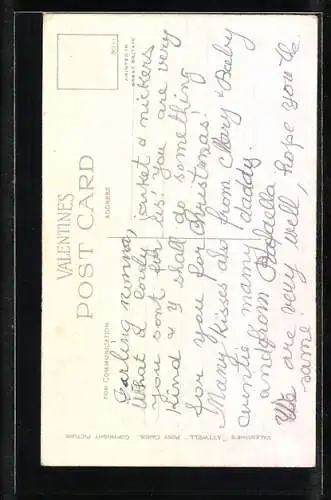 VALENTINES
POST CARD
FOR COMMUNICATION
ADDRESS
PRINTED IN
GREAT BRITAIN
VALENTINE'S "ATTWELL" POST CARDS. COPYRIGHT PICTURE
Darling nonna,
What a lovely jacket & nickers
you sent for us! you are very
kind & I shall do something
for you for Christmas!
Many kisses also from Mary & Baby
auntie mamy daddy.
and from Raffaella
We are very well, hope you the
same.